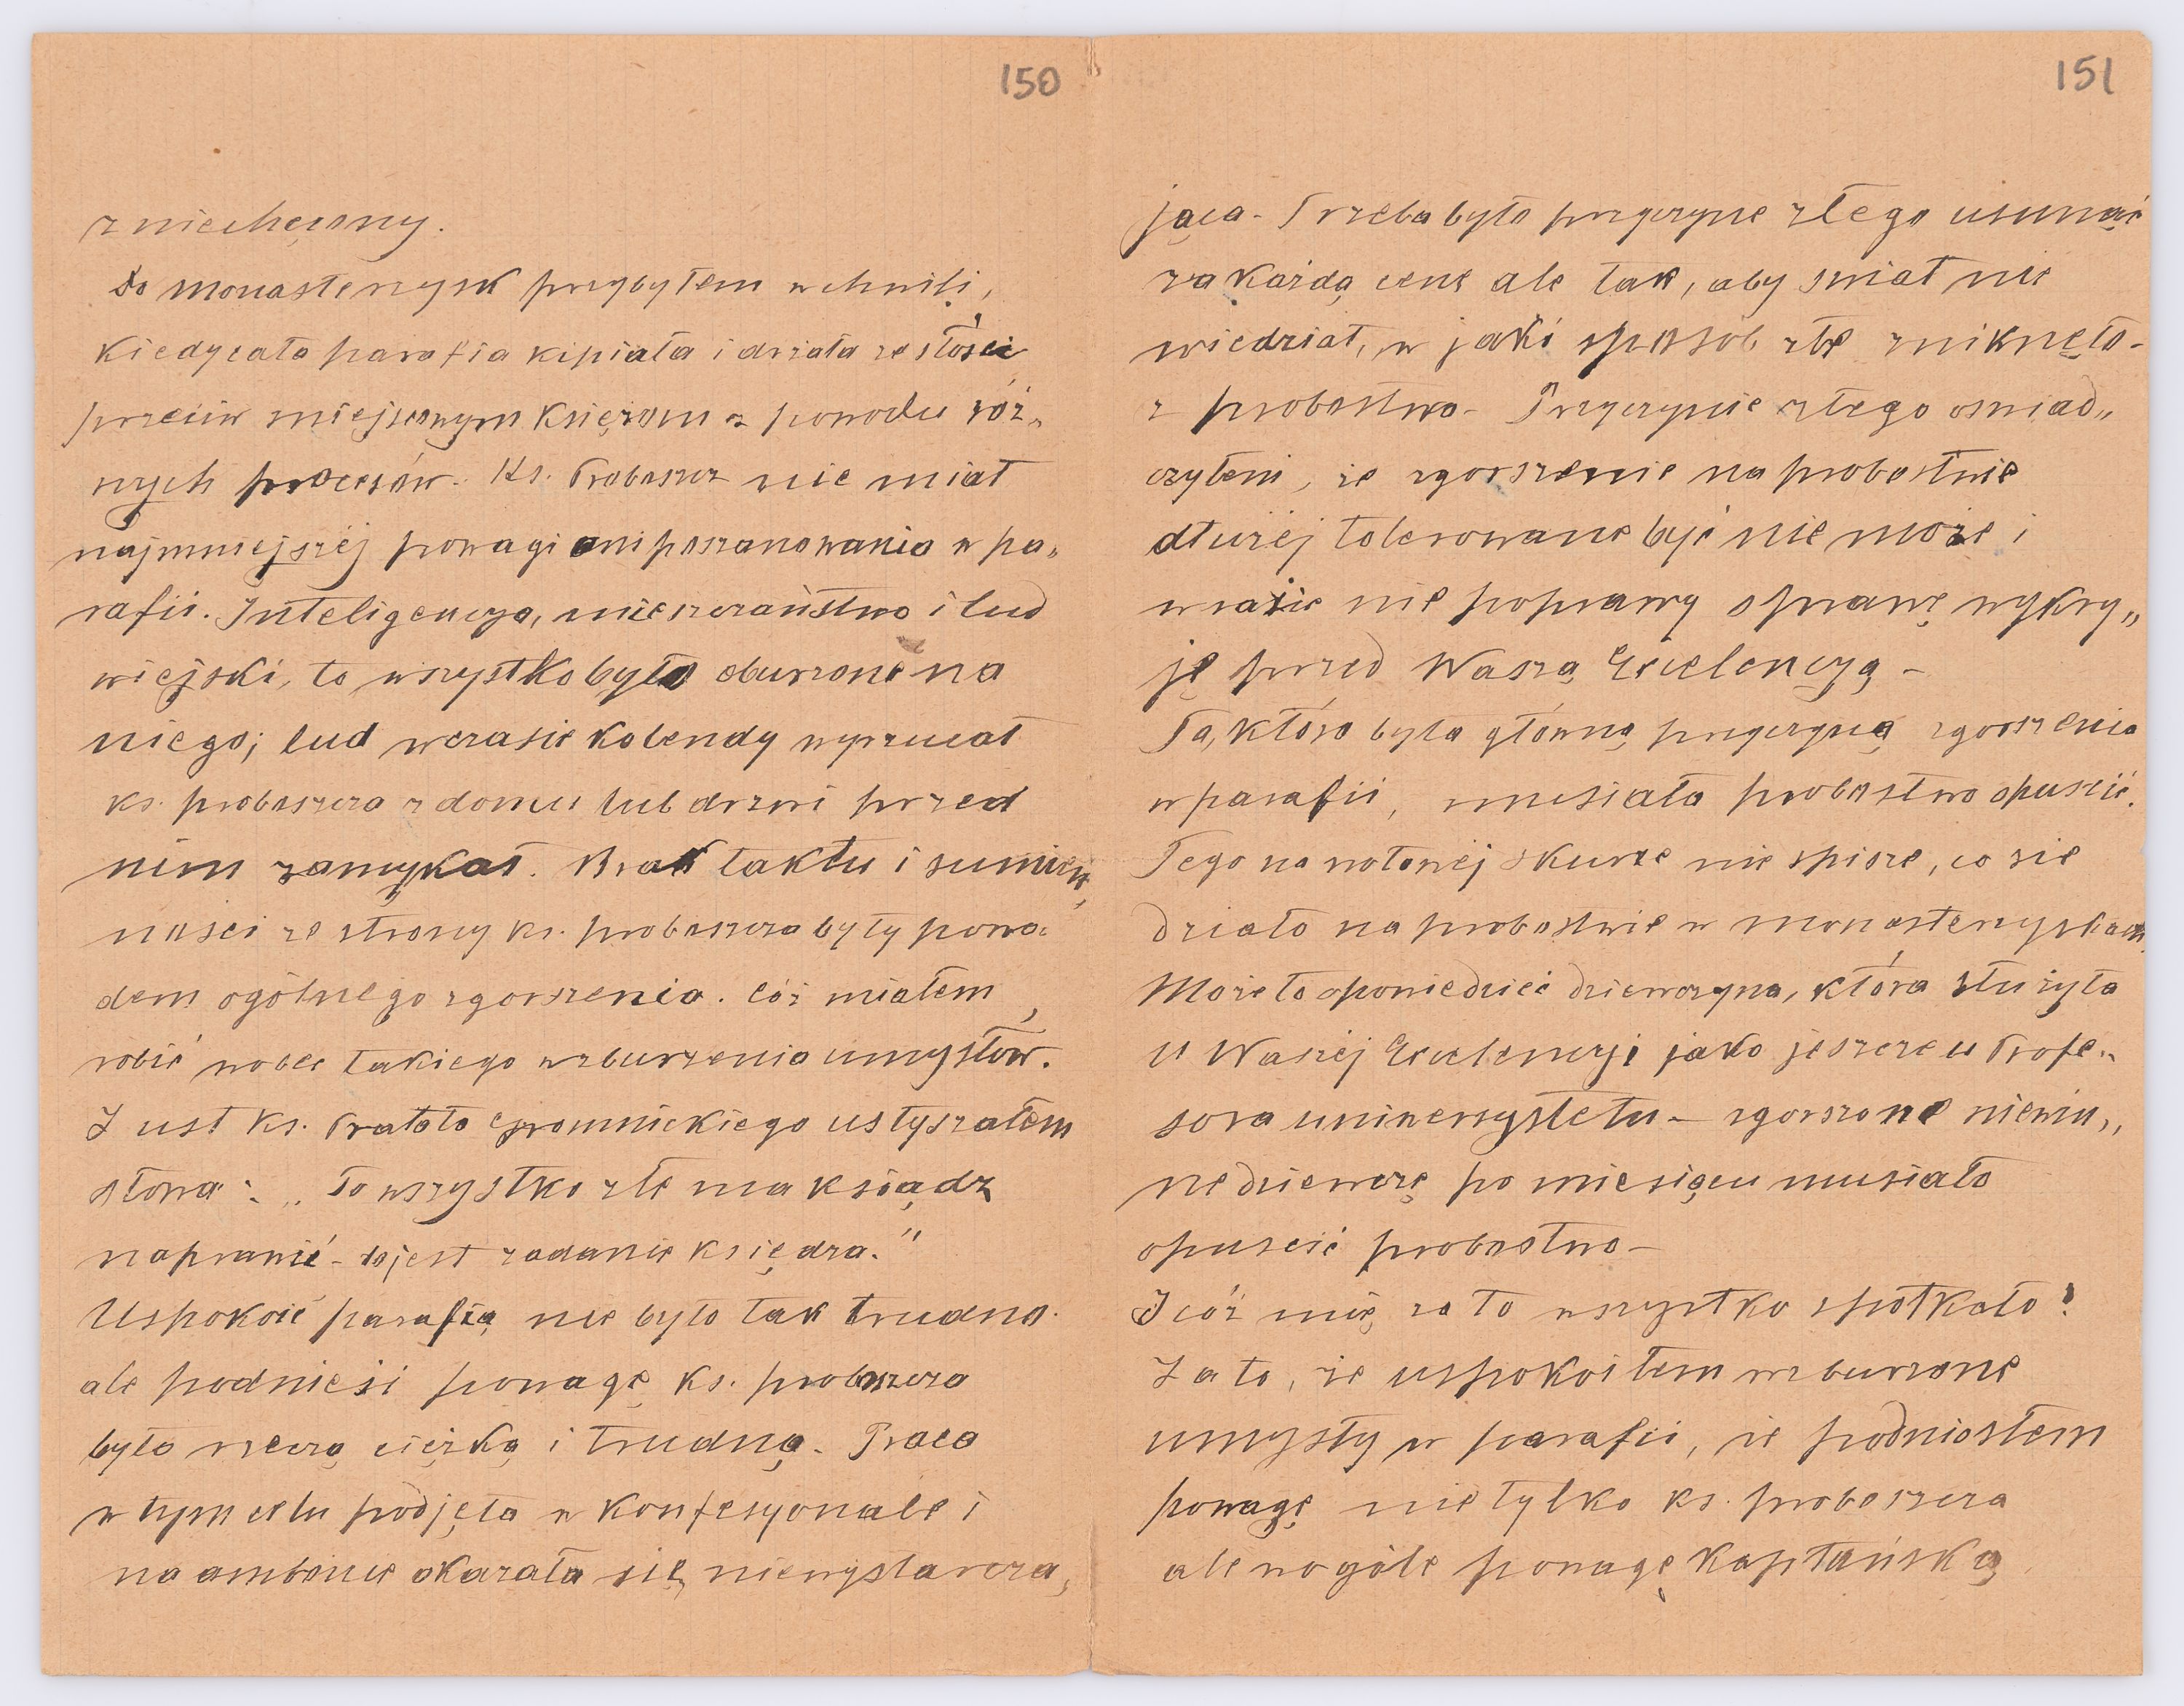 150
zniechęcony.
Do Monasterzysk przybyłem w chwili,
kiedy cała parafia kipiała i drżała ze złości
przeciw miejscowym księżom z powodu róż„
nych procesów. Ks. Proboszcz nie miał
najmniejszéj powagi ani poszanowania w pa„
rafii. Inteligencya, mieszczaństwo i lud
wiejski, to wszystko było oburzone na
niego; lud w czasie kolendy wyrzucał
ks. proboszcza z domu lub drzwi przed
nim zamykał. Brak taktu i sumien„
ności ze strony ks. proboszcza były powo„
dem ogólnego zgorszenia. Cóż miałem
robić wobec takiego wzburzenia umysłów.
Z ust ks. Prałata Gromnickiego usłyszałem
słowa: „To wszystko złe ma ksiądz
naprawić - to jest zadanie księdza."
Uspokoić parafią nie było tak trudno
ale podnieść powagę ks. proboszcza
było rzeczą ciężką i trudną. Praca
w tym celu podjęta w konfesyonale i
na ambonie okazała się niewystarcza„
151
jąca - Trzeba było przyczynę złego usunąć
za każdą cenę ale tak, aby świat nie
wiedział, w jaki sposób złe zniknęło -
z probostwa - Przyczynie złego oświad„
czyłem, że zgorszenie na probostwie
dłużéj tolerowane być nie może i
w razie nie poprawy sprawę wykry„
ję przed Waszą Excelencyą -
Ta, która była główną przyczyną zgorszenia
w parafii, musiała probostwo opuścić.
Tego na wołowéj skurze nie spisze, co się
działo na probostwie w Monasterzyskach.
Może to opowiedzieć dziewczyna, która służyła
u Waszéj Excelencyi jako jeszcze u Profe„
sora uniwersytetu - zgorszone niewin„
ne dziewczę po miesiącu musiało
opuścić probostwo -
I cóż mię za to wszystko spotkało?
Za to, że uspokoiłem wzburzone
umysły w parafii, że podniosłem
powagę nie tylko ks. proboszcza
ale wogóle powagę kapłańską